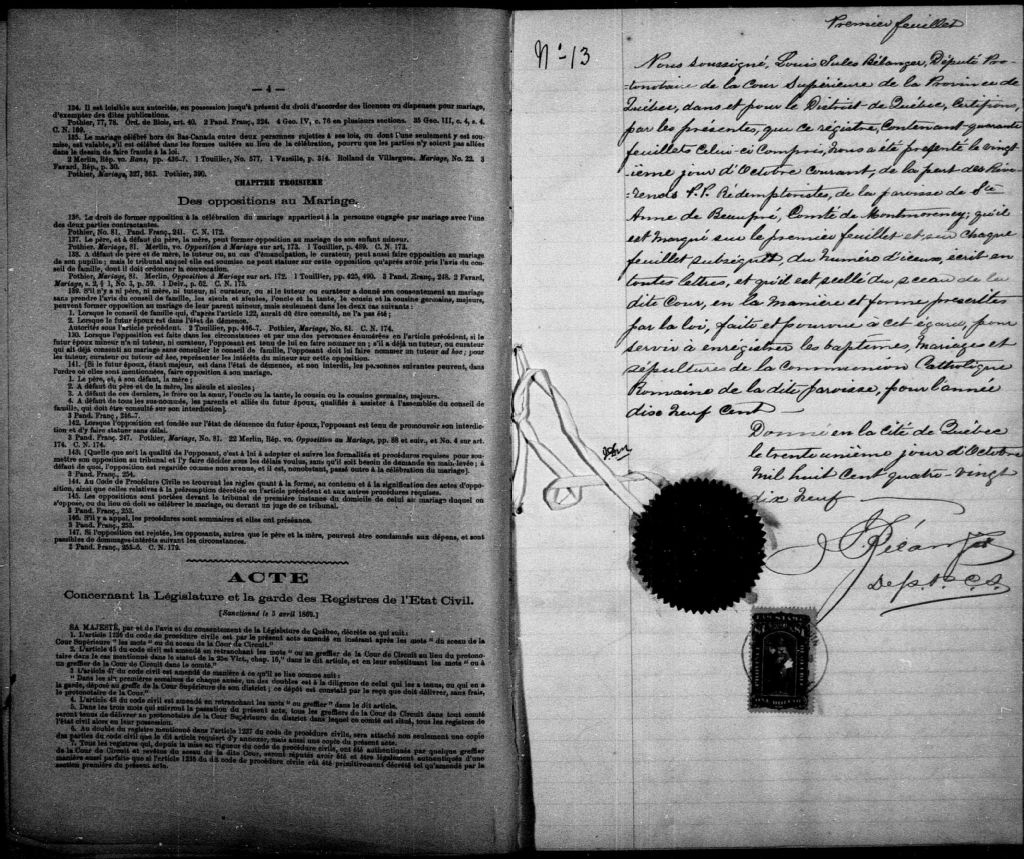 — 4 —
134. Il est loisible aux autorités, en possession jusqu'à présent du droit d'accorder des licences ou dispenses pour mariage,
d'exempter des dites publications.
Pothier, 77, 78. Ord. de Blois, art. 40. 2 Pand. Franç., 224. 4 Geo. IV, c. 76 en plusieurs sections. 35 Geo. III, c. 4, s. 4.
C. N. 169.
135. Le mariage célébré hors du Bas-Canada entre deux personnes sujettes à ses lois, ou dont l'une seulement y est soumise,
est valable, s'il est célébré dans les formes usitées au lieu de la célébration, pourvu que les parties n'y soient pas allées
dans le dessein de faire fraude à la loi.
2 Merlin, Rép. vo. Bans, pp. 436-7. 1 Touillier, No. 577. 1 Vazeille, p. 314. Rolland de Villargues, Mariage, No. 22. 3
Favard, Rép., p. 30.
Pothier, Mariage, 327, 363. Pothier, 390.
CHAPITRE TROISIEME
Des oppositions au Mariage.
136. Le droit de former opposition à la célébration du mariage appartient à la personne engagée par mariage avec l'une
des deux parties contractantes.
Pothier, No. 81. Pand. Franç., 241. C. N. 172.
137. Le père, et à défaut du père, la mère, peut former opposition au mariage de son enfant mineur.
Pothier, Mariage, 81. Merlin, vo. Opposition à Mariage sur art. 173. 1 Touillier, p. 489. C. N. 173.
138. A défaut de père et de mère, le tuteur ou, au cas d'émancipation, le curateur, peut aussi faire opposition au mariage
de son pupille; mais le tribunal auquel elle est soumise ne peut statuer sur cette opposition qu'après avoir pris l'avis du conseil
de famille, dont il doit ordonner la convocation.
Pothier, Mariage, 81. Merlin, Opposition à Mariage sur art. 172. 1 Touillier, pp. 425, 490. 3 Pand. Franç., 248. 2 Favard,
Mariage, s. 2, § 1, No. 3, p. 59. 1 Delv., p. 62. C. N. 175.
139. S'il n'y a ni père, ni mère, ni tuteur, ni curateur, ou si le tuteur ou curateur a donné son consentement au mariage
sans prendre l'avis du conseil de famille, les aïeuls et aïeules, l'oncle et la tante, le cousin et la cousine germains, majeurs,
peuvent former opposition au mariage de leur parent mineur, mais seulement dans les deux cas suivants:
1. Lorsque le conseil de famille qui, d'après l'article 122, aurait dû être consulté, ne l'a pas été;
2. Lorsque le futur époux est dans l'état de démence.
Autorités sous l'article précédent. 2 Touillier, pp. 446-7. Pothier, Mariage, No. 81. C. N. 174.
130. Lorsque l'opposition est faite dans les circonstances et par une des personnes énumérées en l'article précédent, si le
futur époux mineur n'a ni tuteur, ni curateur, l'opposant est tenu de lui en faire nommer un; s'il a déjà un tuteur, ou curateur
qui ait déjà consenti au mariage sans consulter le conseil de famille, l'opposant doit lui faire nommer un tuteur ad hoc; pour
les tuteur, curateur ou tuteur ad hoc, représenter les intérêts du mineur sur cette opposition.
141. [Si le futur époux, étant majeur, est dans l'état de démence, et non interdit, les personnes suivantes peuvent, dans
l'ordre où elles sont mentionnées, faire opposition à son mariage.
1. Le père, et, à son défaut, la mère;
2. A défaut du père et de la mère, les aïeuls et aïeules;
3. A défaut de ces derniers, le frère ou la sœur, l'oncle ou la tante, le cousin ou la cousine germains, majeurs.
4. A défaut de tous les sus-nommés, les parents et alliés du futur époux, qualifiés à assister à l'assemblée du conseil de
famille, qui doit être consulté sur son interdiction].
3 Pand. Franç., 246-7.
142. Lorsque l'opposition est fondée sur l'état de démence du futur époux, l'opposant est tenu de promouvoir son interdiction
et d'y faire statuer sans délai.
3 Pand. Franç. 247. Pothier, Mariage, No. 81. 22 Merlin, Rép. vo. Opposition au Mariage, pp. 88 et suiv., et No. 4 sur art.
174. C. N. 174.
143. [Quelle que soit la qualité de l'opposant, c'est à lui à adopter et suivre les formalités et procédures requises pour soumettre
son opposition au tribunal et l'y faire décider sous les délais voulus, sans qu'il soit besoin de demande en main-levée; à
défaut de quoi, l'opposition est regardée comme non avenue, et il est, nonobstant, passé outre à la célébration du mariage].
3 Pand. Franç., 254.
144. Au Code de Procédure Civile se trouvent les règles quant à la forme, au contenu et à la signification des actes d'opposition,
ainsi que celles relatives à la préemption décrétée en l'article précédent et aux autres procédures requises.
145. Les oppositions sont portées devant le tribunal de première instance du domicile de celui au mariage duquel on
s'oppose, ou du lieu où doit se célébrer le mariage, ou devant un juge de ce tribunal.
3 Pand. Franç., 253.
146. S'il y a appel, les procédures sont sommaires et elles ont préséance.
3 Pand. Franç., 253.
147. Si l'opposition est rejetée, les opposants, autres que le père et la mère, peuvent être condamnés aux dépens, et sont
passibles de dommages-intérêts suivant les circonstances.
3 Pand. Franç., 255-6. C. N. 179.
ACTE
Concernant la Législature et la garde des Registres de l'Etat Civil.
[Sanctionné le 5 avril 1869.]
SA MAJESTÉ, par et de l'avis et du consentement de la Législature de Québec, décrète ce qui suit:
1. L'article 1236 du code de procédure civile est par le présent acte amendé en insérant après les mots "du sceau de la
Cour Supérieure" les mots "ou du sceau de la Cour de Circuit."
2. L'article 45 du code civil est amendé en retranchant les mots "ou au greffier de la Cour de Circuit au lieu du protonotaire
dans le cas mentionné dans le statut de la 25e Vict., chap. 16," dans le dit article, et en leur substituant les mots "ou à
un greffier de la Cour de Circuit dans le comté."
3. L'article 47 du code civil est amendé de manière à ce qu'il se lise comme suit:
"Dans les six premières semaines de chaque année, un des doubles est à la diligence de celui qui les a tenus, ou qui en a
la garde, déposé au greffe de la Cour Supérieure de son district; ce dépôt est constaté par le reçu que doit délivrer, sans frais,
le protonotaire de la Cour."
4. L'article 48 du code civil est amendé en retranchant les mots "ou greffier" dans le dit article.
5. Dans les trois mois qui suivront la passation du présent acte, tous les greffiers de la Cour de Circuit dans tout comté
seront tenus de délivrer au protonotaire de la Cour Supérieure du district dans lequel ce comté est situé, tous les registres de
l'état civil alors en leur possession.
6. Au double du registre mentionné dans l'article 1237 du code de procédure civile, sera attaché non seulement une copie
des parties du code civil que le dit article requiert d'y annexer, mais aussi une copie du présent acte.
7. Tous les registres qui, depuis la mise en vigueur du code de procédure civile, ont été authentiqués par quelque greffier
de la Cour de Circuit et revêtus du sceau de la dite Cour, seront réputés avoir été et être légalement authentiqués d'une
manière aussi parfaite que si l'article 1236 du dit code de procédure civile eût été primitivement décrété tel qu'amendé par la
section première du présent acte.
Premier feuillet
No. 13
Nous soussigné, Louis Jules Bélanger, Député Pro-
-tonotaire de la Cour Supérieure de la Province de
Québec, dans et pour le District de Québec, Certifions,
par les présentes, que ce régistre, Contenant quarante
feuillets Celui-ci Compris, Nous a été présenté le vingt-
-ième jour d'Octobre Courant, de la part des Rév-
-érends P.P. Rédemptoristes, de la paroisse de Ste
Anne de Beaupré, Comté de Montmorency; qu'il
est Marqué sur le premier feuillet et sur chaque
feuillet subséquent, du Numéro d'iceux, écrit en
toutes lettres, et qu'il est scellé du sceau de la
dite Cour, en la Manière et forme prescrites
par la loi, faite et pourvue à cet égard, pour
servir à enregistrer les baptêmes, Mariages et
sépultures de la Communion Catholique
Romaine de la dite paroisse, pour l'année
dix Neuf Cent
Donné en la Cité de Québec
le trente unième jour d'Octobre
Mil huit Cent quatre-vingt
dix Neuf
L. J. Bélanger
Dep. P. C. S.